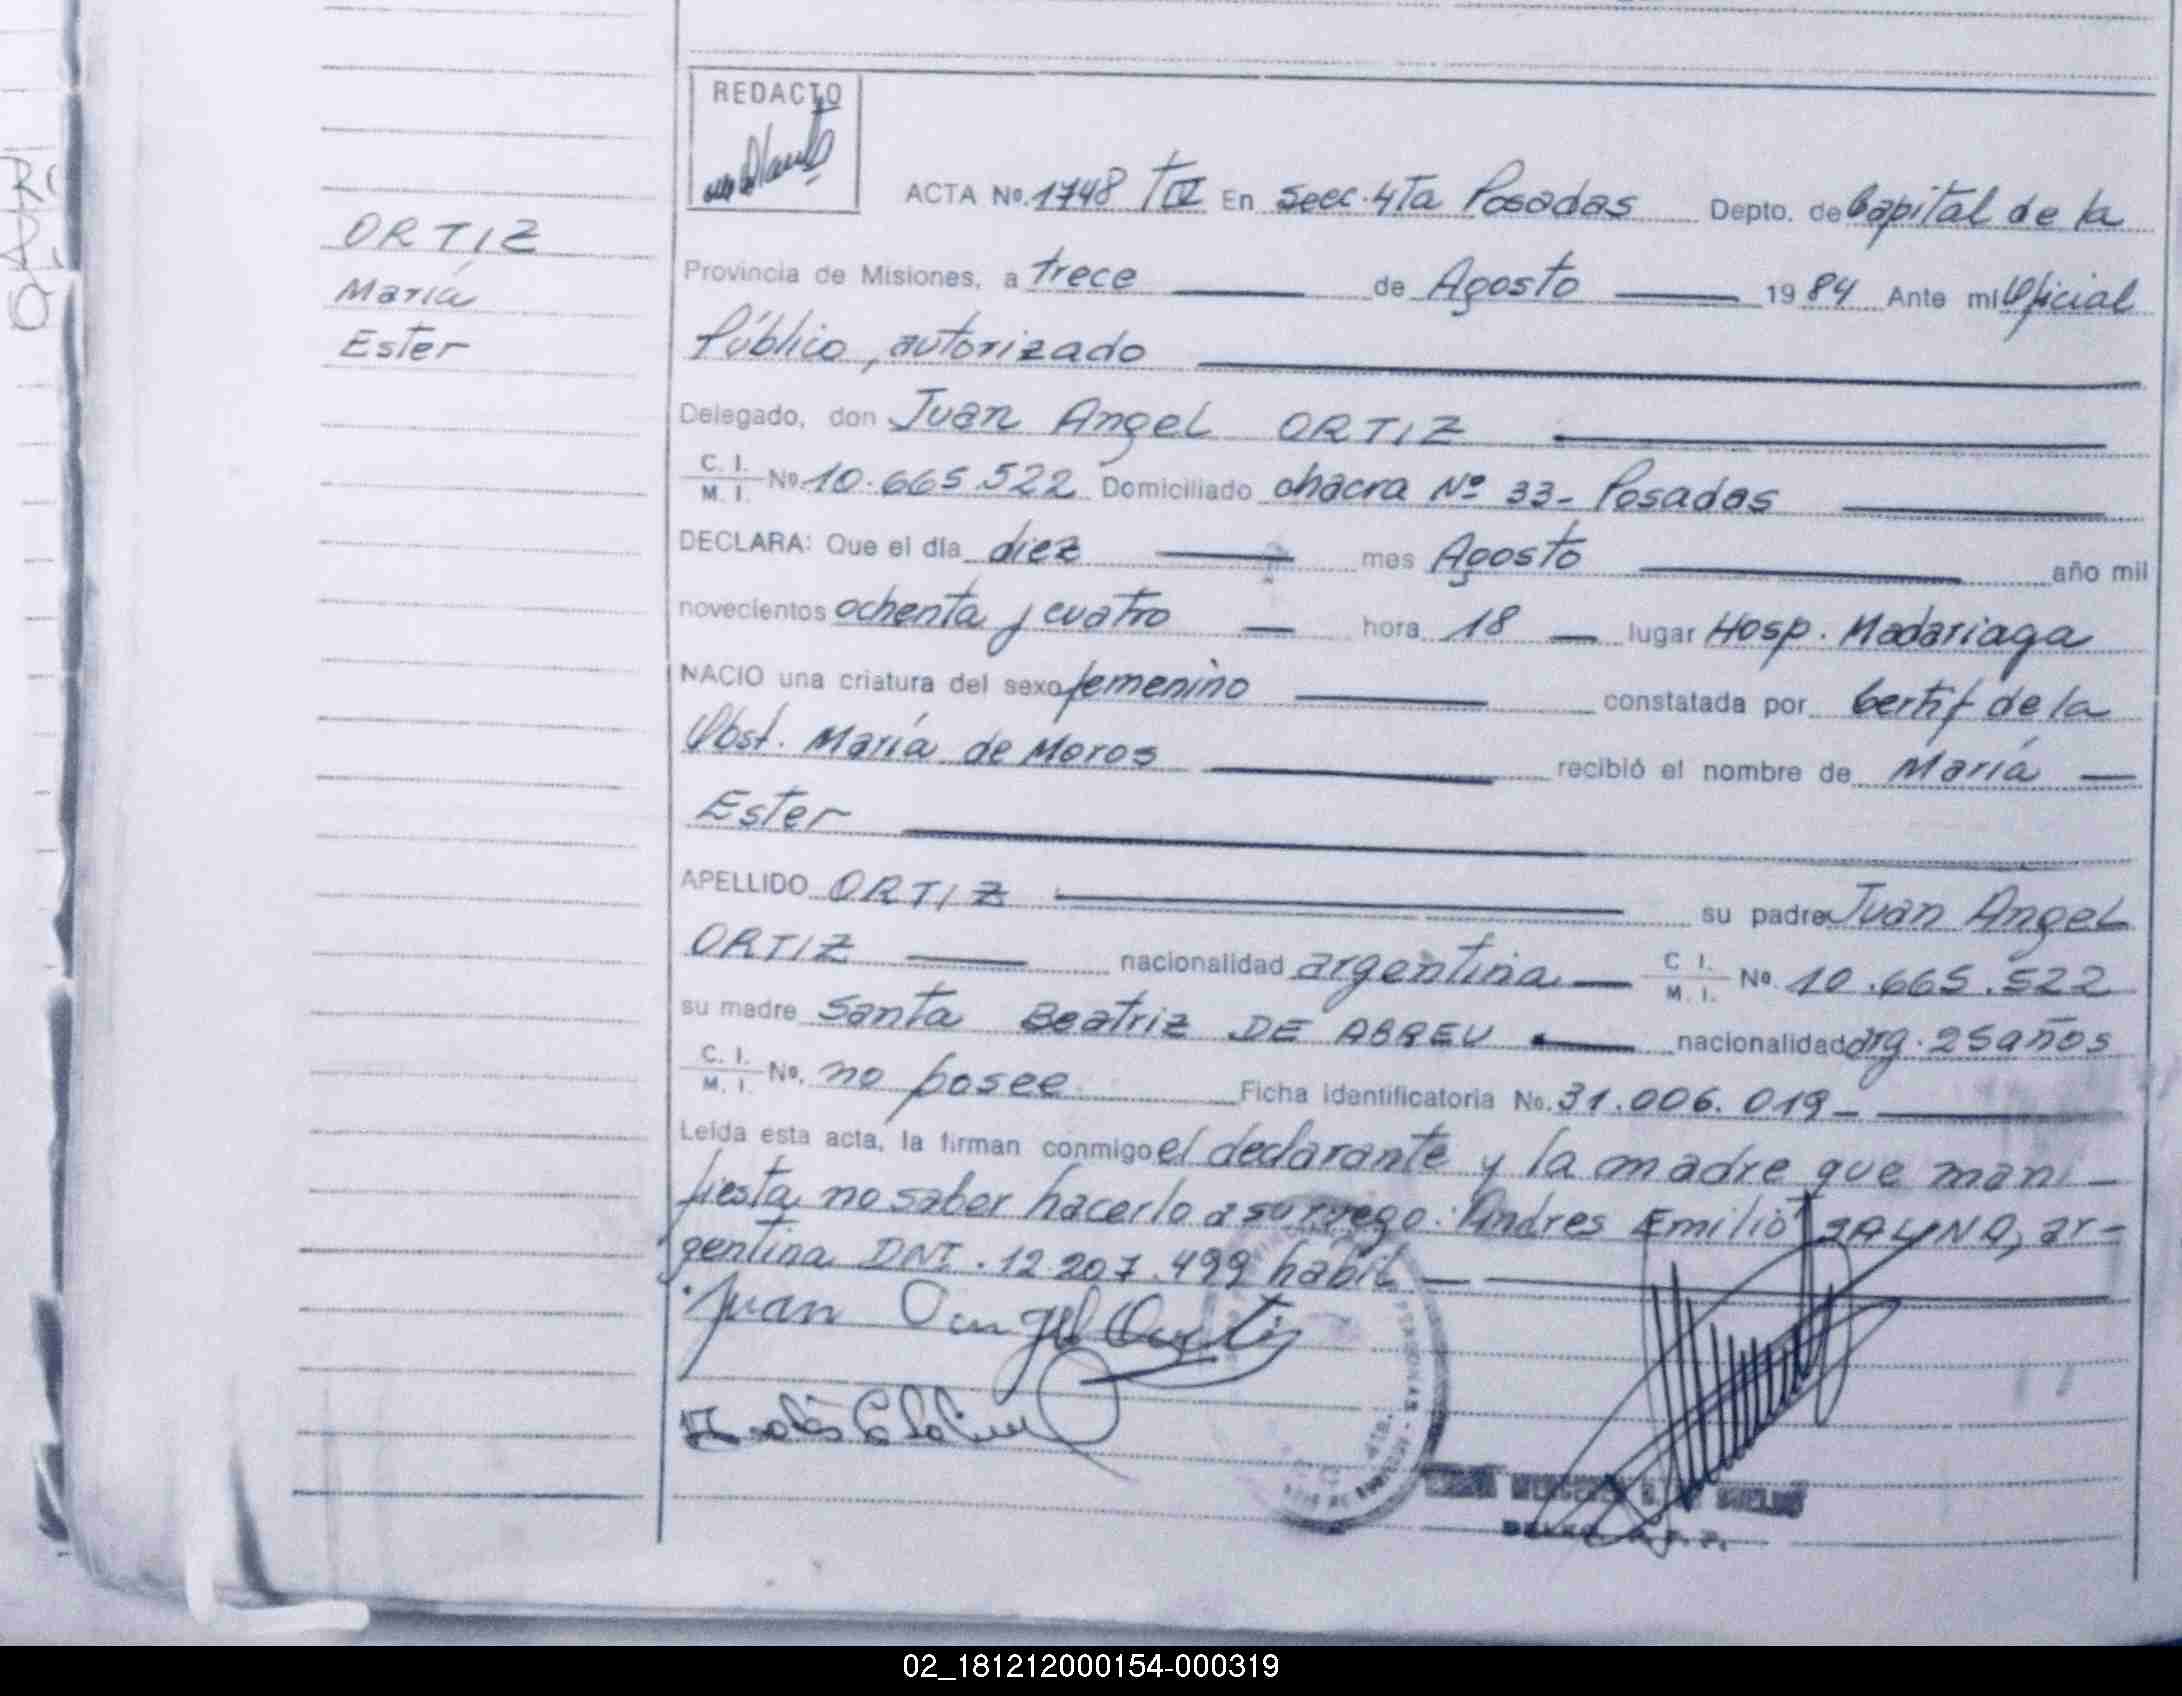 REDACTO
ORTIZ
María
Ester
ACTA No. 1748 TIV En secc. 4Ta Posadas Depto. de Capital de la
Provincia de Misiones, a trece de Agosto 1984 Ante mi Oficial
Público, autorizado
Delegado, don Juan Angel ORTIZ
C. I.
M. I. No. 10.665.522 Domiciliado chacra Nº 33- Posadas
DECLARA: Que el día diez mes Agosto año mil
novecientos ochenta y cuatro hora 18 lugar Hosp. Madariaga
NACIO una criatura del sexo femenino constatada por Certif de la
Obst. María de Moros recibió el nombre de María
Ester
APELLIDO ORTIZ su padre Juan Angel
ORTIZ nacionalidad argentina C I.
M. I. No. 10.665.522
su madre Santa Beatriz DE ABREU nacionalidad arg. 25 años
C. I.
M. I. No. no posee Ficha identificatoria No. 31.006.019-
Leída esta acta, la firman conmigo el declarante y la madre que mani-
fiesta no saber hacerlo a su ruego: Andres Emilio, ar-
gentina DNI. 12.207.499 habil
Juan Angel Ortiz
02_181212000154-000319